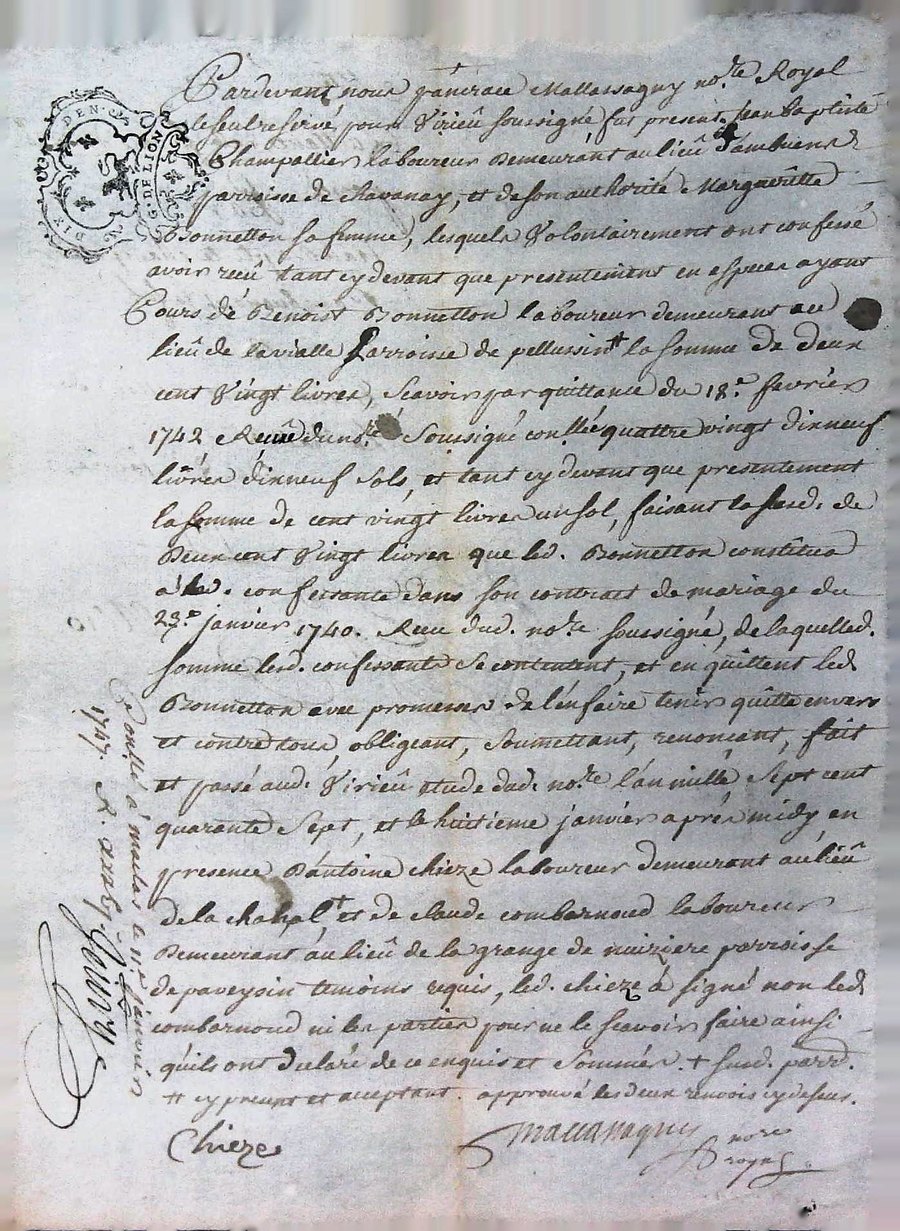 DIX DEN.
G. DE LION
Pardevant nous pancrace Mallassagny no.re Royal
le seul reservé pour Virieû soussigné, fut present Jean baptiste
Champallier laboureur demeurant au lieû
parroisse de Chavanay, et de son authorité Marguerîtte
Bonnetton sa femme, lesquels Volontairement ont confessé
avoir reçû tant cy devant que presentement en especes ayant
Cours dé Benoist Bonnetton laboureur demeurant au
lieû de lavialle parroisse de pellussin + la somme de deux
cent Vingt livres, Scavoir par quittance du 18.e fevrier
1742 Receüe du no.re Soussigné con.llée quattre vingt dixneuf
livres dixneuf sols, et tant cy devant que presentement
la somme de cent vingt livres un sol, faisant lasusd. de
Deux cent Vingt livres que led. Bonnetton constitua
a lad. confessante dans son contrait de mariage du
23.e janvier 1740. Receu dud. no.re soussigné, de laquelled.
somme lesd. confessants se contentent, et en quittent led.
Bonnetton avec promesses de l'en faire tenir quitte envers
et contre tous, obligeant, soumettant, renoncant, fait
et passé aud. Virieû etude dud. no.re l'an mille Sept cent
quarante Sept, et le huitieme janvier après midy, en
presence D'antoine chieze laboureur demeurant au lieû
de la et de claude combarnoud laboureur
Demeurant au lieû de la grange de nuiziere parroisse
de paveysin temoins requis, led. chieze à signé non led.
combarnoud ni les parties pour ne le scavoir faire ainsi
qu'ils ont declaré de ce enquis et sommés. + susd. parr.
++ cy present et acceptant. approuvé les deux renvois cy dessus.
Chieze
Mallassagny
no.re
royal
Conllé á malas le 11.e Janvier
1747. R.